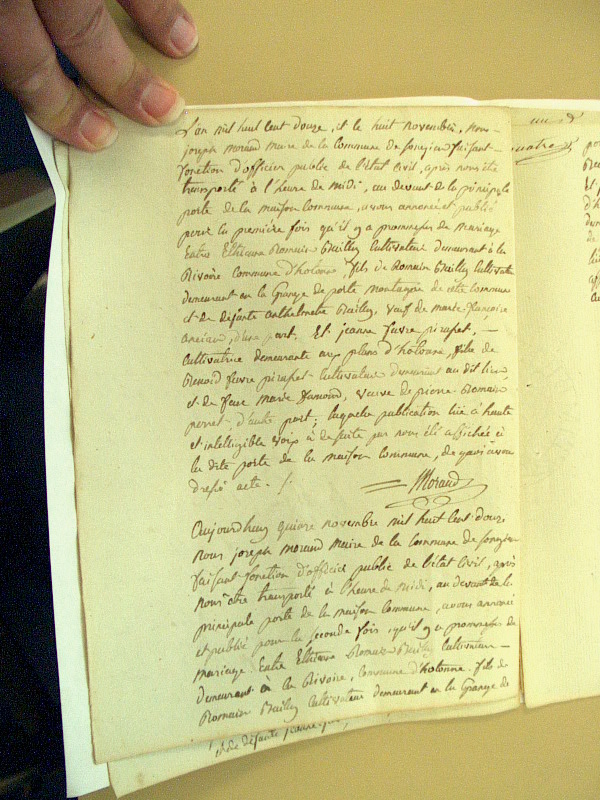 L'an mil huit cent douze, et le huit novembre, nous
joseph morand maire de la commune de songieu faisant
fonction d'officier public de l'état civil, après nous être
transporté à l'heure de midi, au devant de la principale
porte de la maison commune, avons annoncé et publié
pour la première fois qu'il y a promesses de mariage
Entre Ethienne Romain Bailly cultivateur demeurant à la
Rivoire commune d'hotonne, fils de Romain Bailly cultivateur
demeurant en la Grange de porte montagne de cette commune
et de defunte anthelmette Bailly, veuf de marie françoise
ancian, d'une part. Et jeanne favre pirafet,
cultivatrice demeurante aux plans d'hotonne, fille de
Benoid favre pirafet cultivateur demeurant au dit lieu
et de feue Marie Hamond, veuve de pierre Romain
perret, d'autre part; laquelle publication lue à haute
et intelligible voix à de suite par nous été affichée à
la dite porte de la maison commune, de quoi avons
dressé acte.
Morand
Aujourdhuy quinze novembre mil huit cent douze
nous joseph morand Maire de la commune de songieu
faisant fonction d'officier public de l'état civil, après
nous être transporté à l'heure de midi, au devant de la
principale porte de la maison commune, avons annoncé
et publié pour la seconde fois, qu'il y a promesses de
mariage Entre Ethienne Romain Bailly cultivateur
demeurant à la Rivoire, commune d'hotonne. fils de
Romain Bailly cultivateur demeurant en la Grange de
et de defunte jeanne